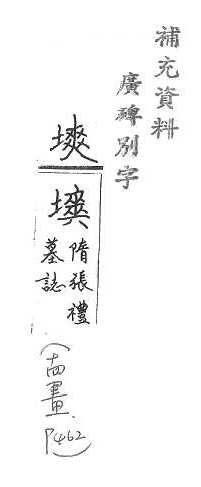 補充資料
廣碑別字
塽
隋張禮
墓誌
(十四畫. P462)